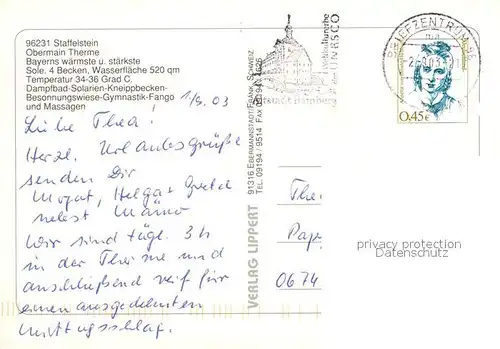 96231 Staffelstein
Obermain Therme
Bayerns wärmste u. stärkste
Sole. 4 Becken, Wasserfläche 520 qm
Temperatur 34-36 Grad C.
Dampfbad-Solarien-Kneippbecken-
Besonnungswiese-Gymnastik-Fango
und Massagen
1/9.03
Liebe Thea!
Herzl. Urlaubsgrüße
senden Dir
Helga
nebst Männer
Wir sind tägl. 3 h
in der Therme und
anschließend reif für
einen ausgedehnten
Mittagsschlaf.
VERLAG LIPPERT
91316 EBERMANNSTADT/FRÄNK. SCHWEIZ
TEL. 09194 / 9514
BRIEFZENTRUM 96
0,45€
The
Pap
0674
privacy protection
Datenschutz